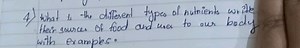 4) What is the different types of nutrients write
their sources of food and uses to our body
with examples.